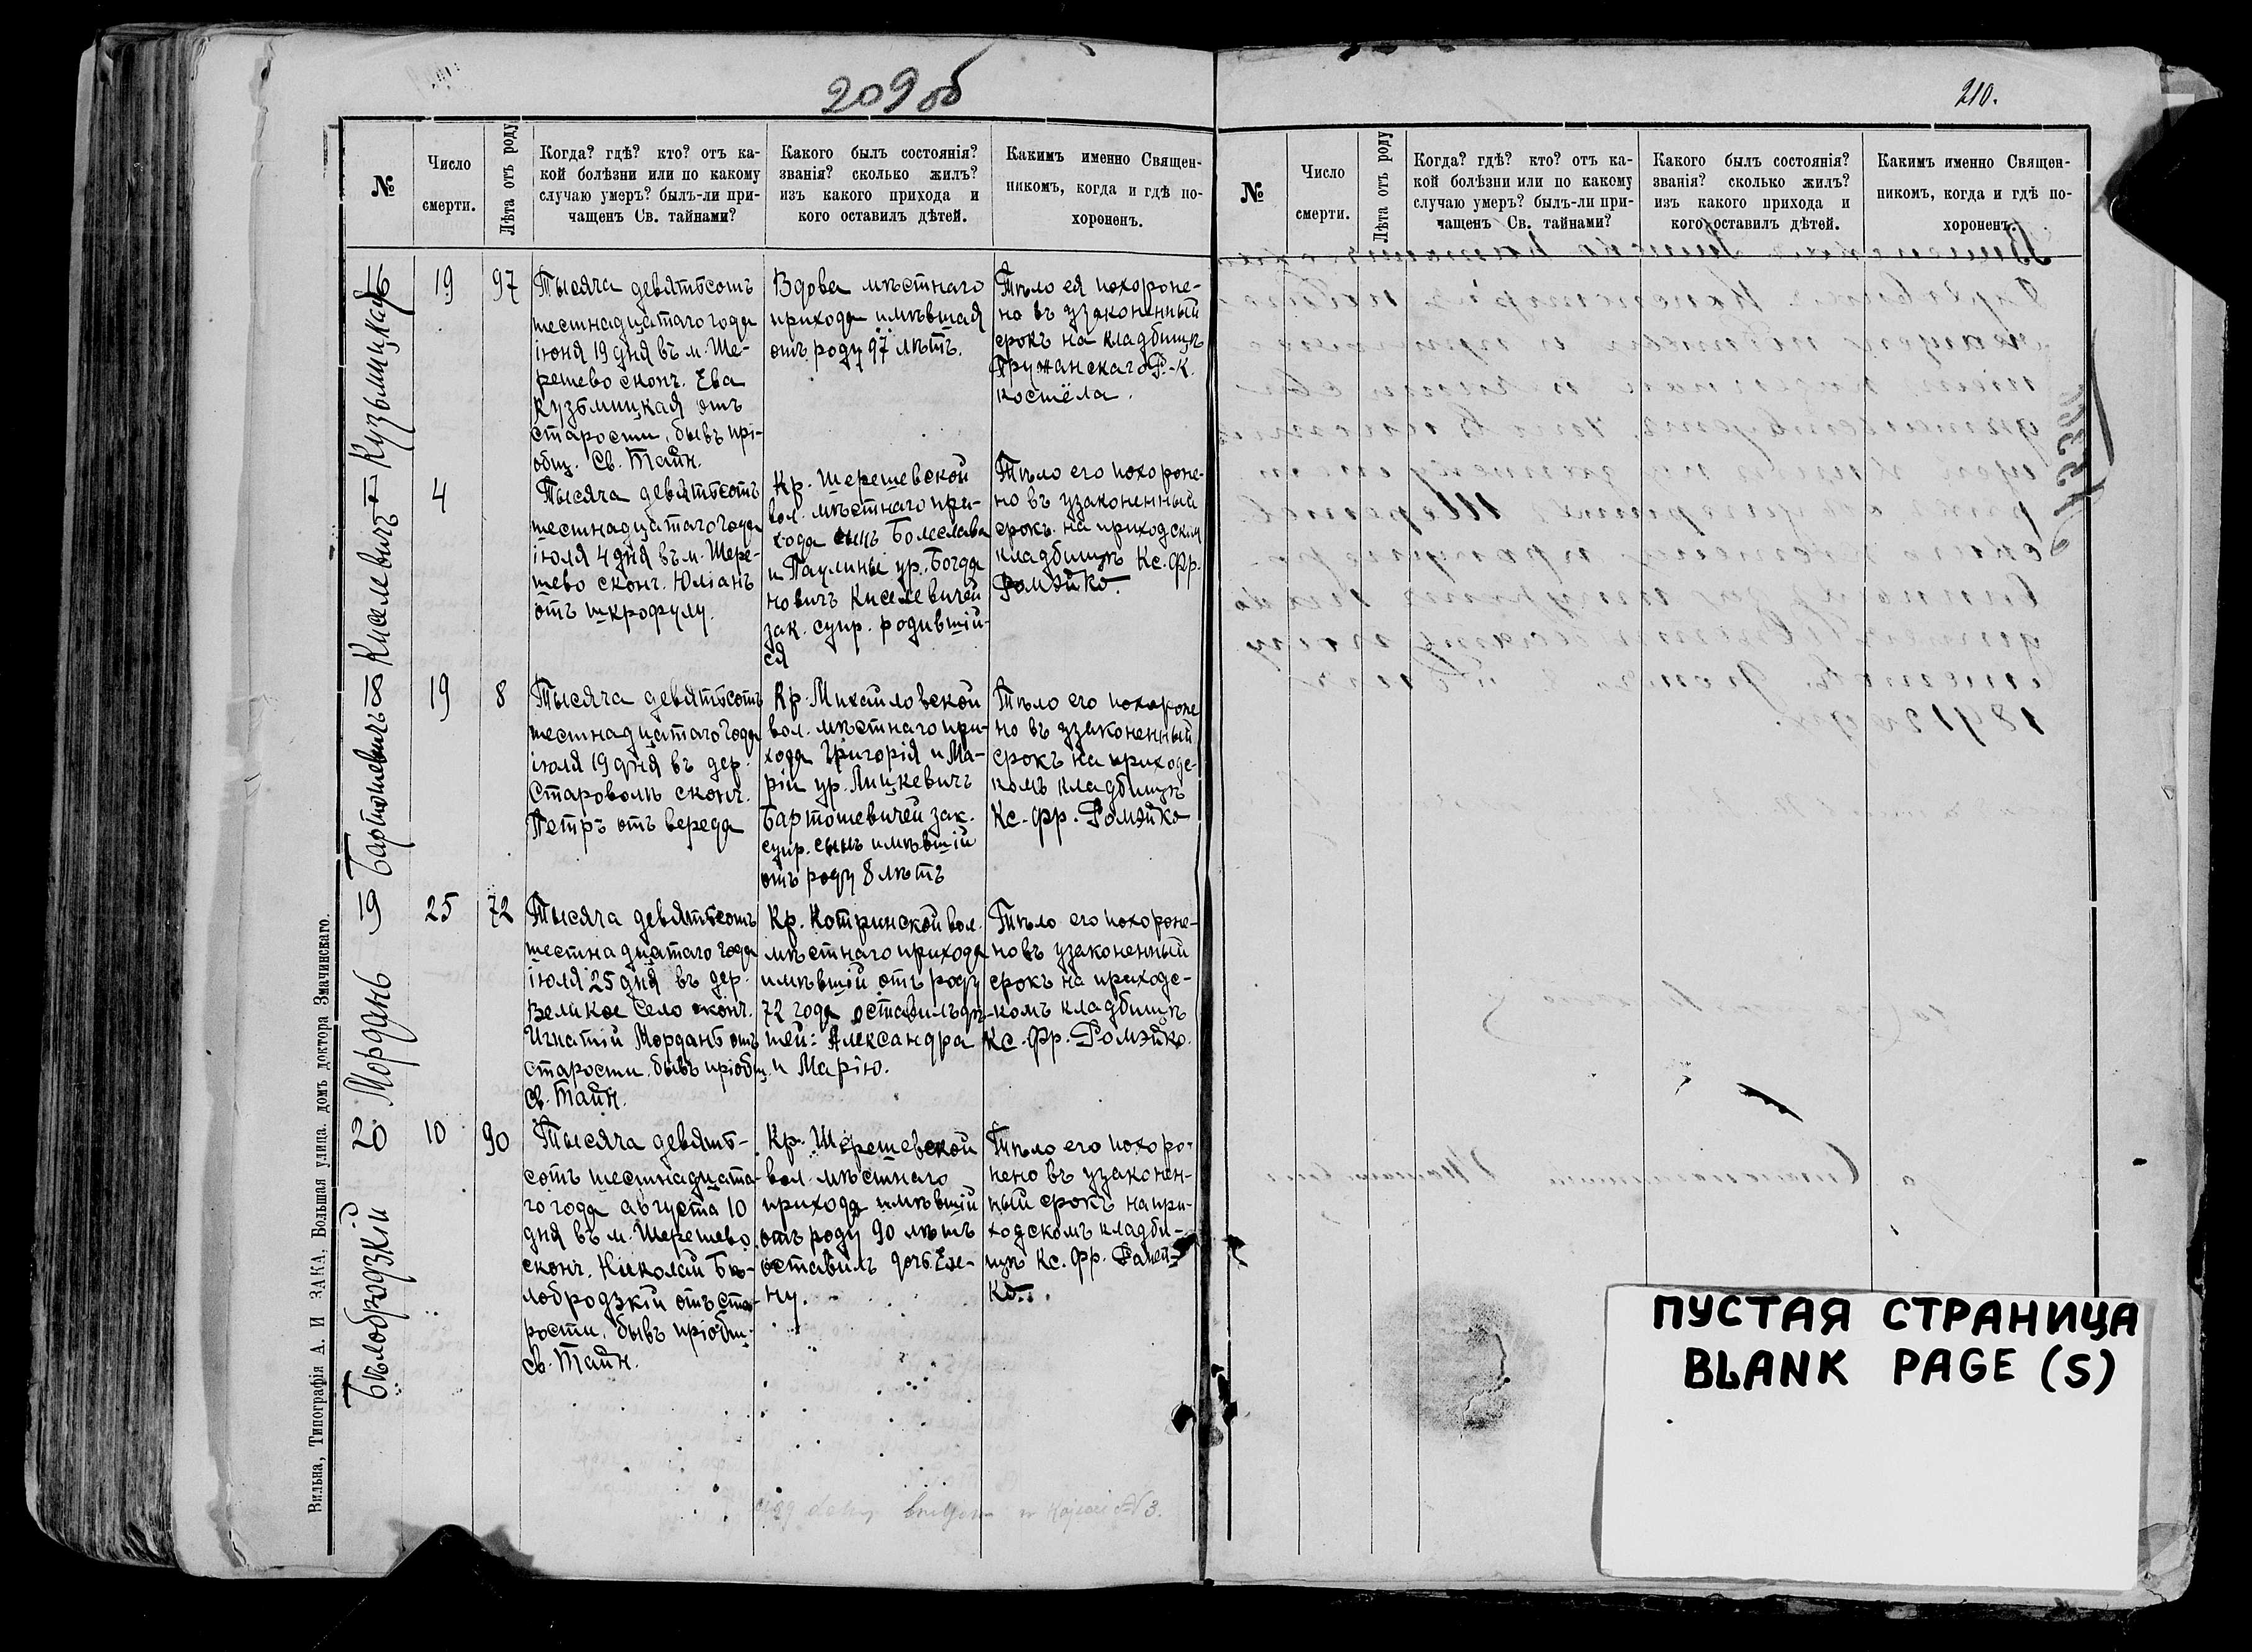 209 об
№
Число
смерти.
Лѣта отъ роду
Когда? гдѣ? кто? отъ ка-
кой болѣзни или по какому
случаю умеръ? былъ-ли при-
чащенъ Св. тайнами?
Какого былъ состоянія?
званія? сколько жилъ?
изъ какого прихода и
кого оставилъ дѣтей.
Какимъ именно Священ-
никомъ, когда и гдѣ по-
хороненъ.
16
Кузьмицкая
19
97
Тысяча девятьсотъ
шестнадцатаго года
іюня 19 дня въ м. Ше-
решево сконч. Ева
Кузьмицкая отъ
старости, бывъ прі-
общ. Св. Тайн.
Вдова мѣстнаго
прихода имѣвшая
отъ роду 97 лѣтъ.
Тѣло ея похороне-
но въ узаконенный
срокъ на кладбищѣ
Пружанскаго Р.-К.
костёла.
17
Киселевичъ
4
Тысяча девятьсотъ
шестнадцатаго года
іюля 4 дня въ м. Шере-
шево сконч. Юліанъ
отъ шкрофулу.
Кр. Шерешевской
вол. мѣстнаго при-
хода сынъ Болеслава
и Паулины ур. Богда
новичъ Киселевичей
зак. супр. родившій-
ся
Тѣло его похороне-
но въ узаконенный
срокъ на приходском
кладбищѣ Кс. Фр.
Ромэйко.
18
Бартошевичъ
19
8
Тысяча девятьсотъ
шестнадцатаго года
іюля 19 дня въ дер.
Староволѣ сконч.
Петръ отъ вереда
Кр. Михайловской
вол. мѣстнаго при-
хода Григорія и Ма-
ріи ур. Мицкевичъ
Бартошевичей зак.
супр. сынъ имѣвшій
отъ роду 8 лѣтъ
Тѣло его похороне
но въ узаконенный
срокъ на приходс-
комъ кладбищѣ
Кс. Фр. Ромэйко
19
Морданъ
25
72
Тысяча девятьсотъ
шестнадцатаго года
іюля 25 дня въ дер.
Великое Село сконч.
Игнатій Морданъ отъ
старости, бывъ пріобщ.
Св. Тайн.
Кр. Котринской вол.
мѣстнаго прихода
имѣвшій отъ роду
72 года оставилъ дѣ-
тей: Александра
и Марію.
Тѣло его похороне-
но въ узаконенный
срокъ на приходс-
комъ кладбищѣ
Кс. Фр. Ромэйко.
20
Бѣлобродзкій
10
90
Тысяча девять-
сотъ шестнадцата-
го года августа 10
дня въ м. Шерешево
сконч. Николай Бѣ-
лобродзкій отъ ста-
рости, бывъ пріобщ.
Св. Тайн.
Кр. Шерешевской
вол. мѣстнаго
прихода имѣвшій
отъ роду 90 лѣтъ
оставилъ дочь Еле-
ну.
Тѣло его похоро-
нено въ узаконен-
ный срокъ на при-
ходскомъ кладби-
щѣ Кс. Фр. Ромей-
ко.
Вильна, Типографія А. И ЗАКА, Большая улица. домъ доктора Змачинскаго.
210.
№
Число
смерти.
Лѣта отъ роду
Когда? гдѣ? кто? отъ ка-
кой болѣзни или по какому
случаю умеръ? былъ-ли при-
чащенъ Св. тайнами?
Какого былъ состоянія?
званія? сколько жилъ?
изъ какого прихода и
кого оставилъ дѣтей.
Какимъ именно Священ-
никомъ, когда и гдѣ по-
хороненъ.
ПУСТАЯ СТРАНИЦА
BLANK PAGE (S)